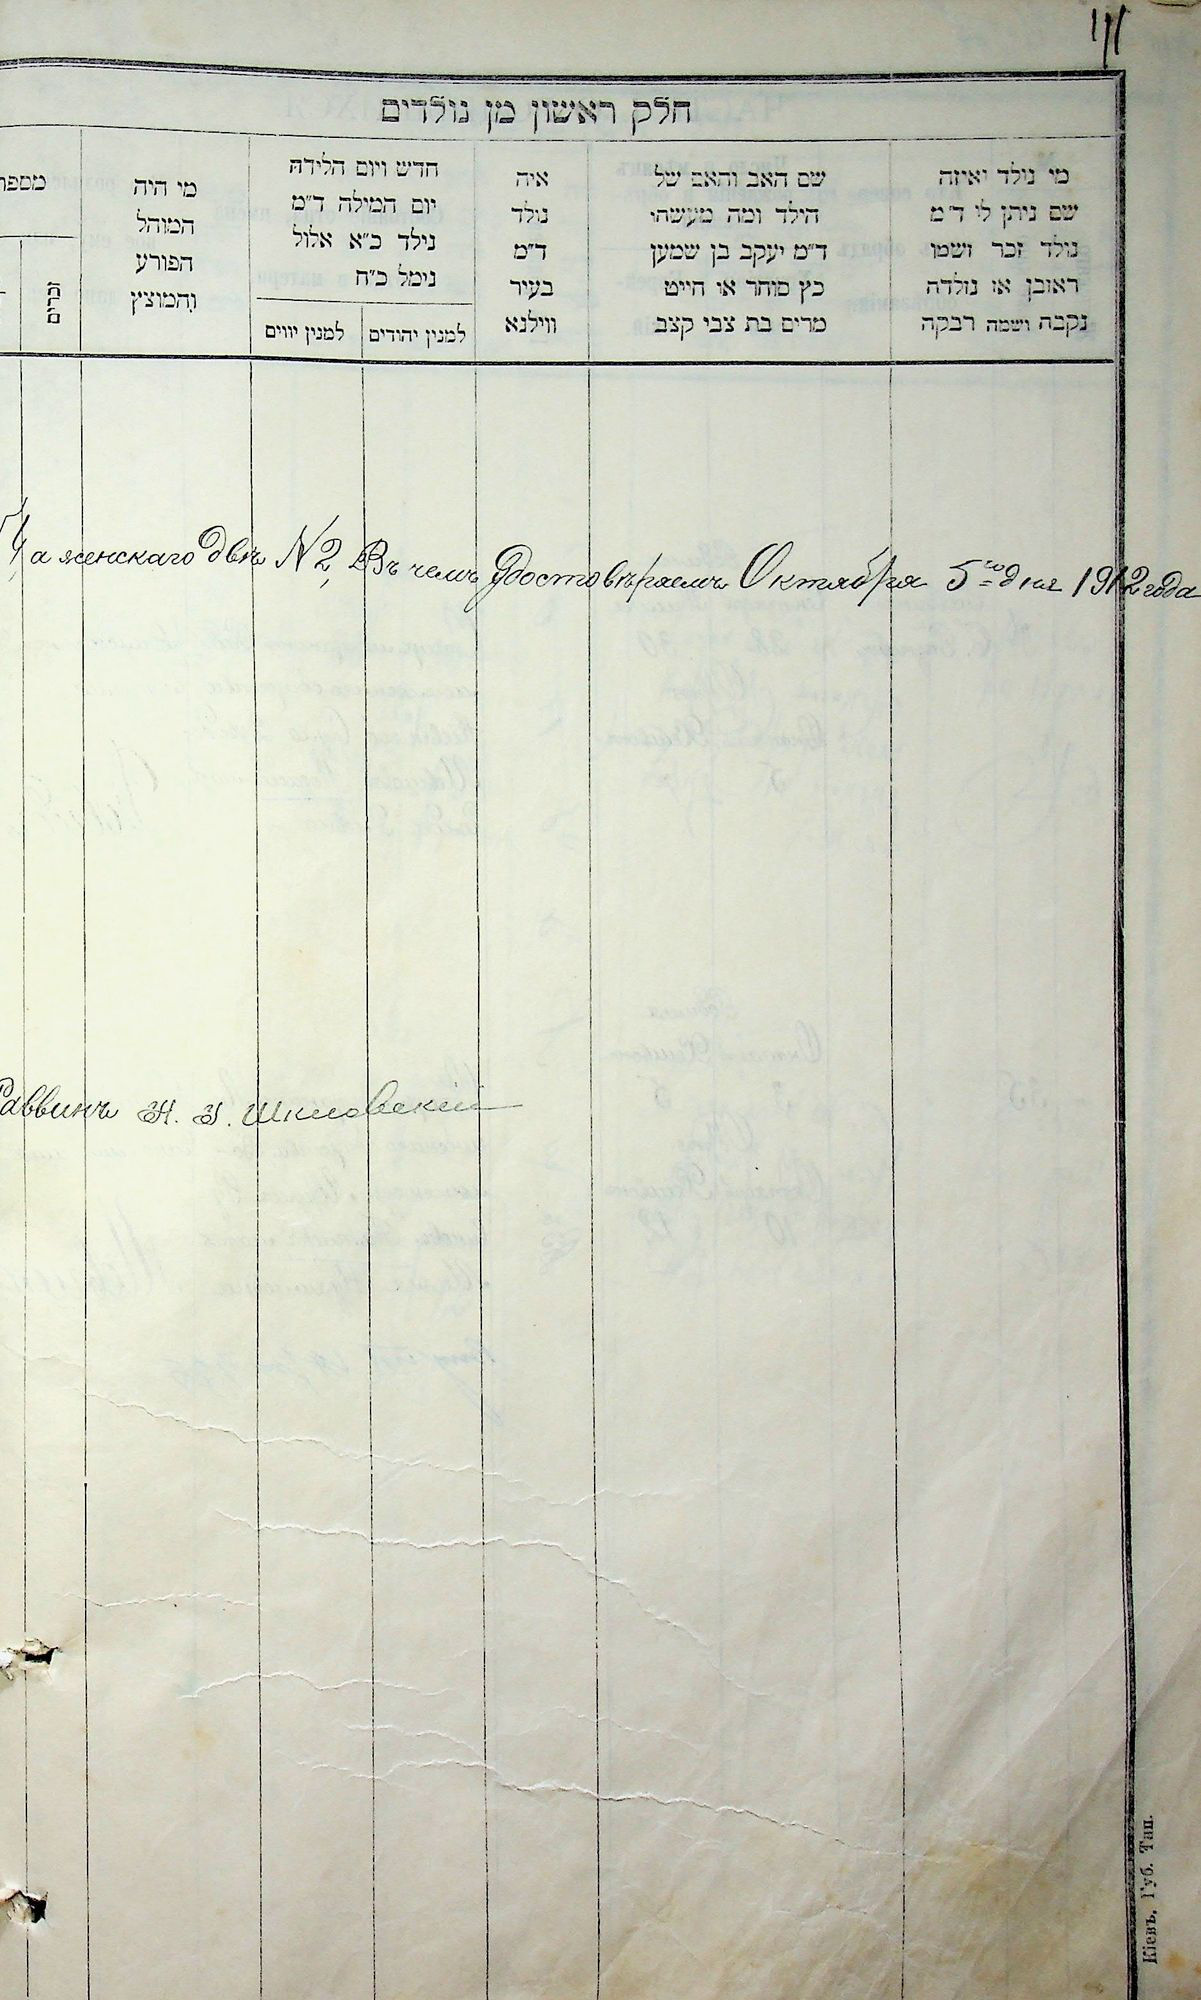 חלק ראשון מן נולדים
מי נולד ואיזה
שם ניתן לו ד״מ
נולד זכר ושמו
ראובן או נולדה
נקבה ושמה רבקה
שם האב והאם של
הילד ומה מעשהו
ד״מ יעקב בן שמעון
כץ סוחר או חייט
מרים בת צבי קצב
איה
נולד
ד״מ
בעיר
ווילנא
חדש ויום הלידה
יום המילה ד״מ
נילד כ״א אלול
נימל כ״ח
למנין יהודים
למנין יווים
מי היה
המוהל
הפורע
והמוצץ
מספר
זכרים
а женскаго двѣ N 2, Въ чемъ удостовѣряемъ Октября 5го дня 1912 года
Раввинъ Шкловскій
Кіевъ, Губ. Тип.